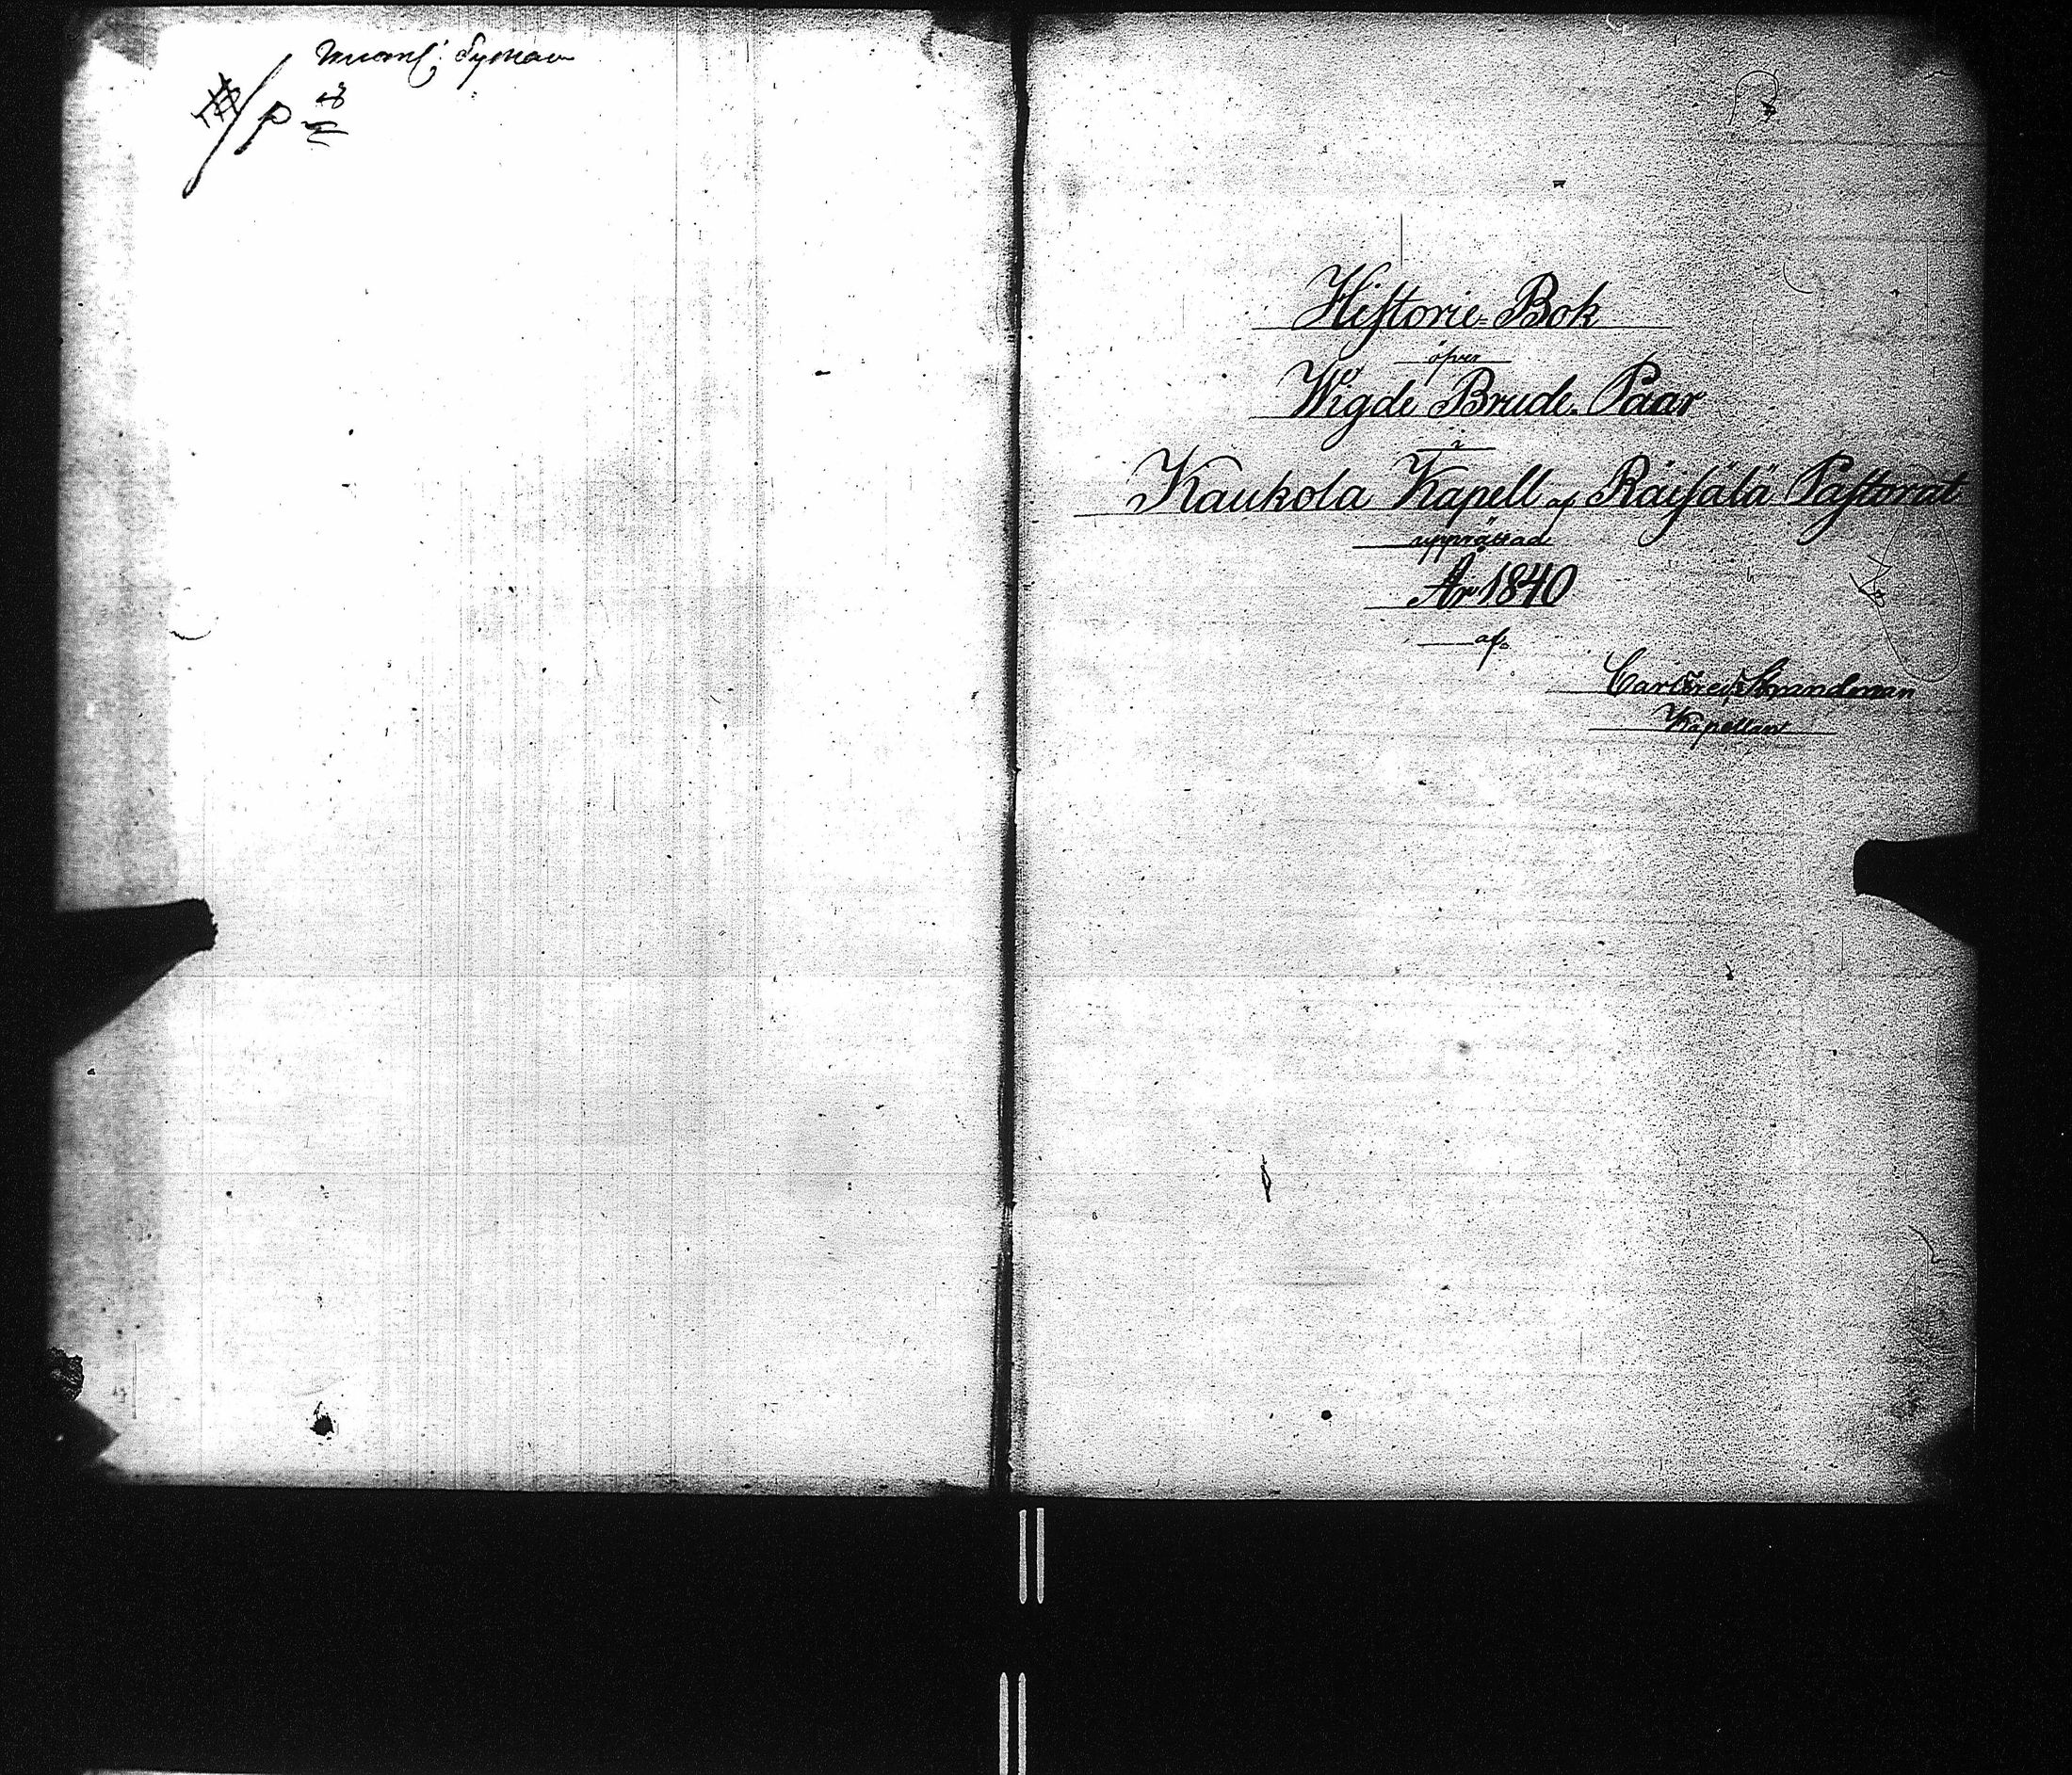 Historie-Bok
öfver
Wigde Brude-Paar
i
Kaukola Kapell af Räisälä Pastorat
upprättad
År 1840
af
Carl Fred. Strandman
Kapellan